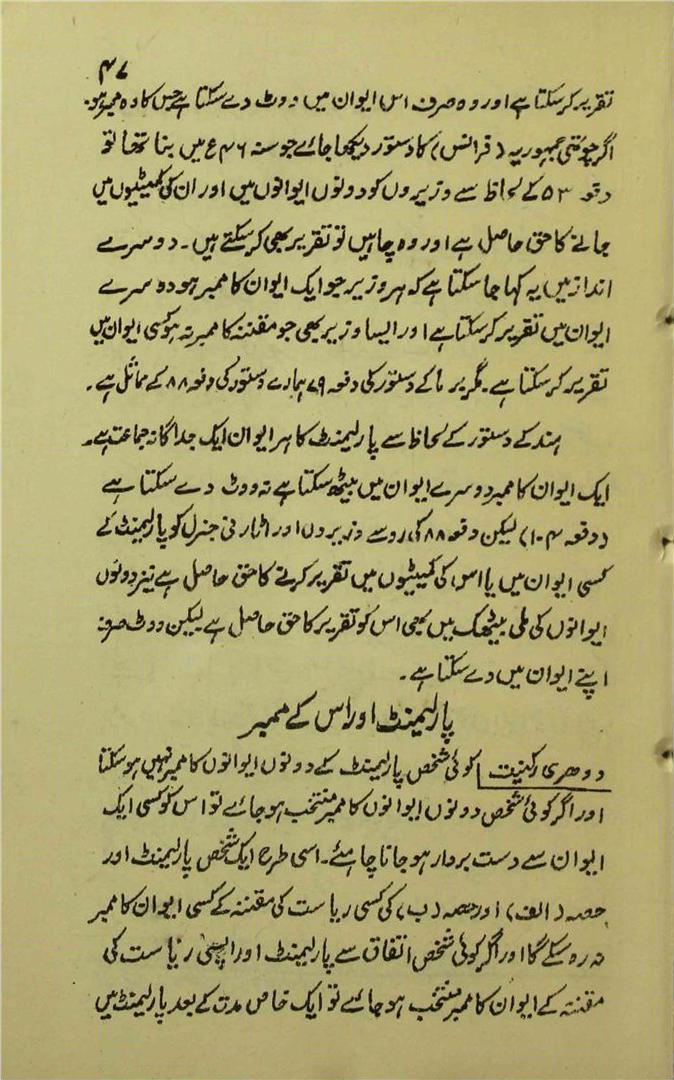 ۴۷
تقریر کر سکتا ہے اور وہ صرف اس ایوان میں ووٹ دے سکتا ہے جس کا وہ ممبر ہو۔
اگر چوتھی جمہوریہ (فرانس) کا دستور دیکھا جائے جو سنہ ۴۶ع میں بنا تھا تو
دفعہ ۵۳ کے لحاظ سے وزیروں کو دونوں ایوانوں میں اور ان کی کمیٹیوں میں
جانے کا حق حاصل ہے اور وہ چاہیں تو تقریر بھی کر سکتے ہیں۔ دوسرے
انداز میں یہ کہا جا سکتا ہے کہ ہر وزیر جو ایک ایوان کا ممبر ہو دوسرے
ایوان میں تقریر کر سکتا ہے اور ایسا وزیر بھی جو مقننہ کا ممبر نہ ہو کسی ایوان میں
تقریر کر سکتا ہے۔ مگر برما کے دستور کی دفعہ ۷۹ ہمارے دستور کی دفعہ ۸۸ کے مماثل ہے۔
ہند کے دستور کے لحاظ سے پارلیمنٹ کا ہر ایوان ایک جداگانہ جماعت ہے۔
ایک ایوان کا ممبر دوسرے ایوان میں بیٹھ سکتا ہے نہ ووٹ دے سکتا ہے
(دفعہ ۱۰۴) لیکن دفعہ ۸۸ کی رو سے وزیروں اور اٹارنی جنرل کو پارلیمنٹ کے
کسی ایوان میں یا اس کی کمیٹیوں میں تقریر کرنے کا حق حاصل ہے نیز دونوں
ایوانوں کی ملی بیٹھک میں بھی اس کو تقریر کا حق حاصل ہے لیکن ووٹ صرف
اپنے ایوان میں دے سکتا ہے۔
پارلیمنٹ اور اس کے ممبر
دوھری رکنیت کوئی شخص پارلیمنٹ کے دونوں ایوانوں کا ممبر نہیں ہو سکتا
اور اگر کوئی شخص دونوں ایوانوں کا ممبر منتخب ہو جائے تو اس کو کسی ایک
ایوان سے دست بردار ہو جانا چاہئے۔ اسی طرح ایک شخص پارلیمنٹ اور
حصہ (الف) اور حصہ (ب) کی کسی ریاست کی مقننہ کے کسی ایوان کا ممبر
نہ رہ سکے گا اور اگر کوئی شخص اتفاق سے پارلیمنٹ اور ایسی ریاست کی
مقننہ کے ایوان کا ممبر منتخب ہو جائے تو ایک خاص مدت کے بعد پارلیمنٹ میں